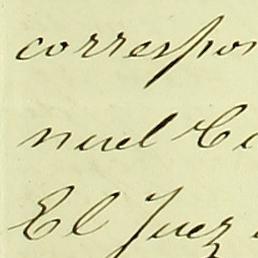 correspon
nuel C
El Juez